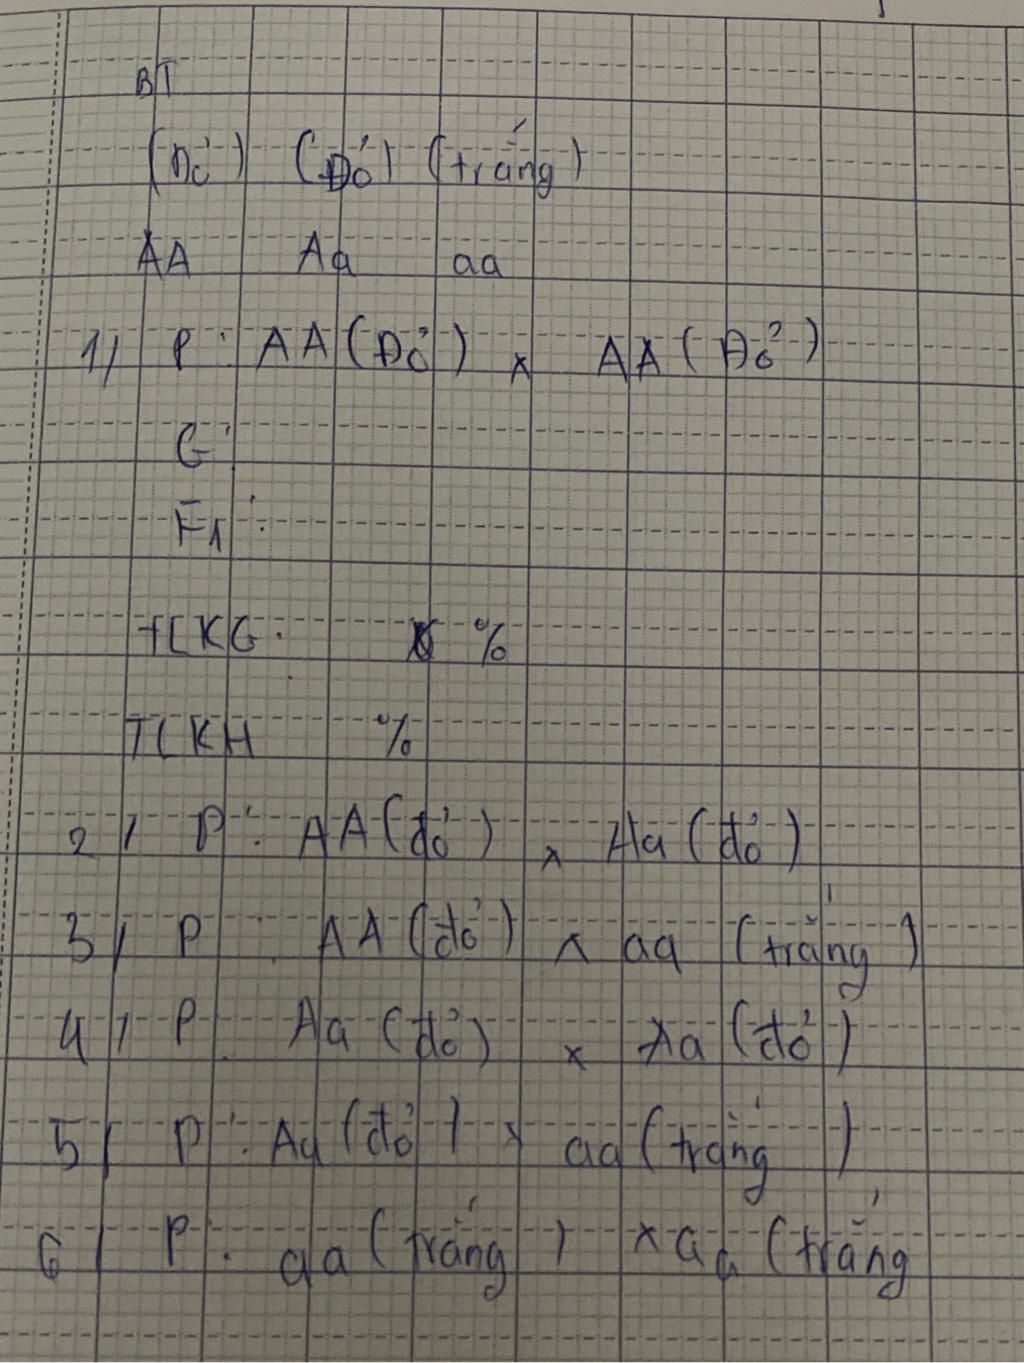 BT
(Đỏ) (Đỏ) (trắng)
AA Aa aa
1/ P: AA (Đỏ) x AA (Đỏ)
G:
F1:
TLKG: %
TLKH %
2/ P: AA (đỏ) x Aa (đỏ)
3/ P: AA (đỏ) x aa (trắng)
4/ P: Aa (đỏ) x Aa (đỏ)
5/ P: Aa (đỏ) x aa (trắng)
6/ P: aa (trắng) x aa (trắng